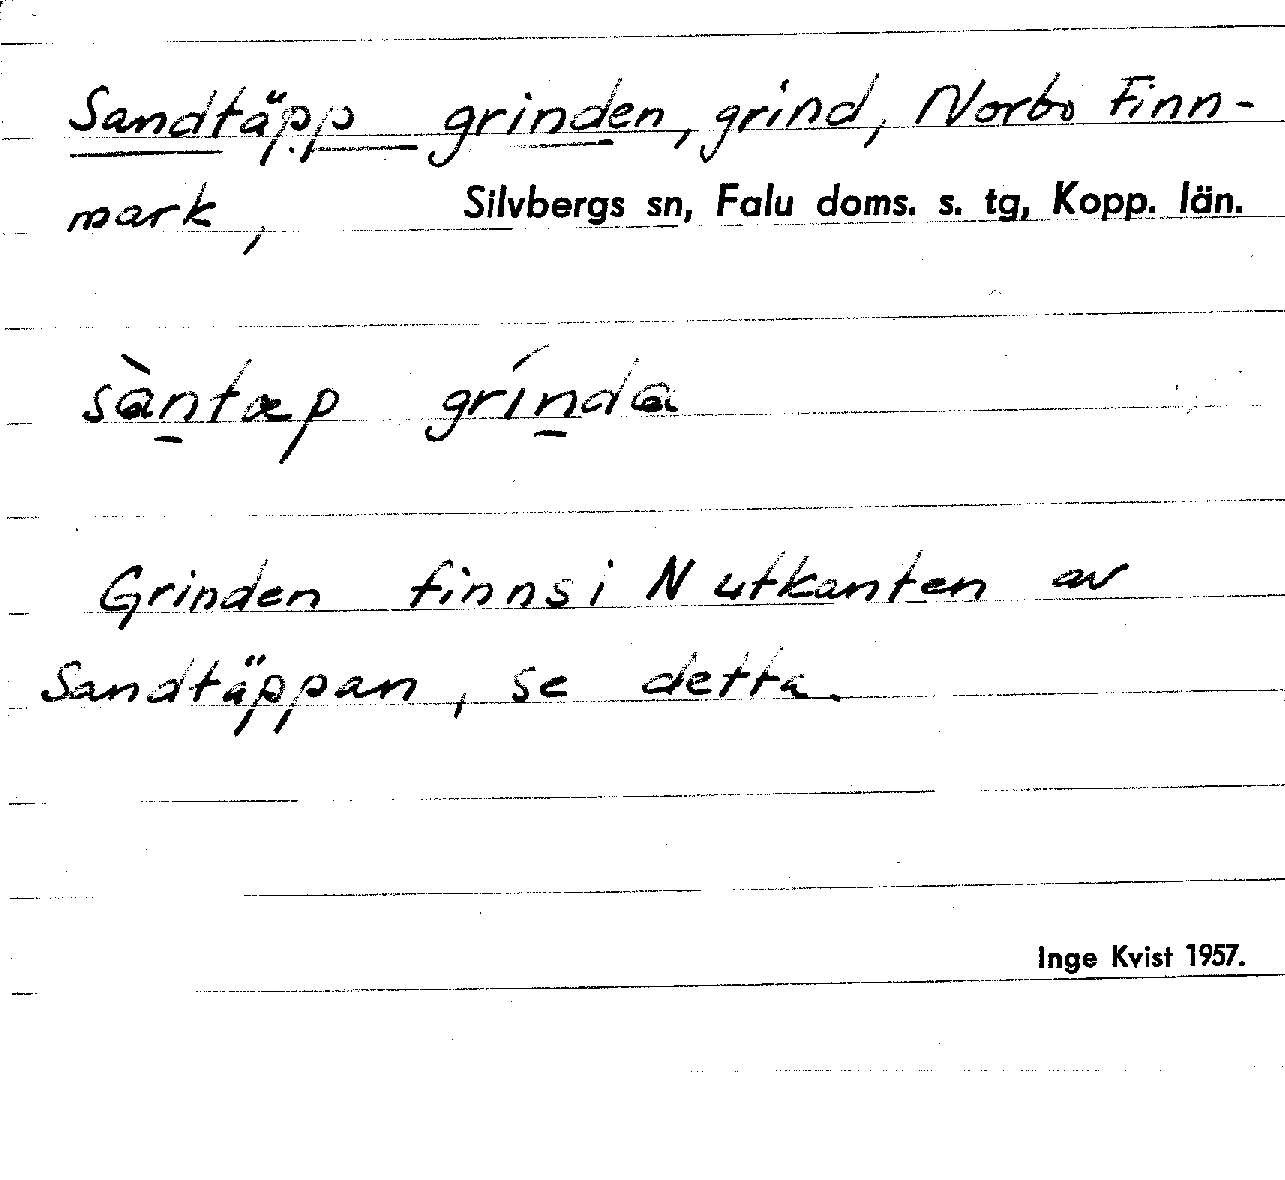 Sandtäpp grinden, grind, Norbo Finn-
mark, Silvbergs sn, Falu doms. s. tg, Kopp. län.
sàntæp grínda
Grinden finns i N utkanten av
Sandtäppan, se detta.
Inge Kvist 1957.